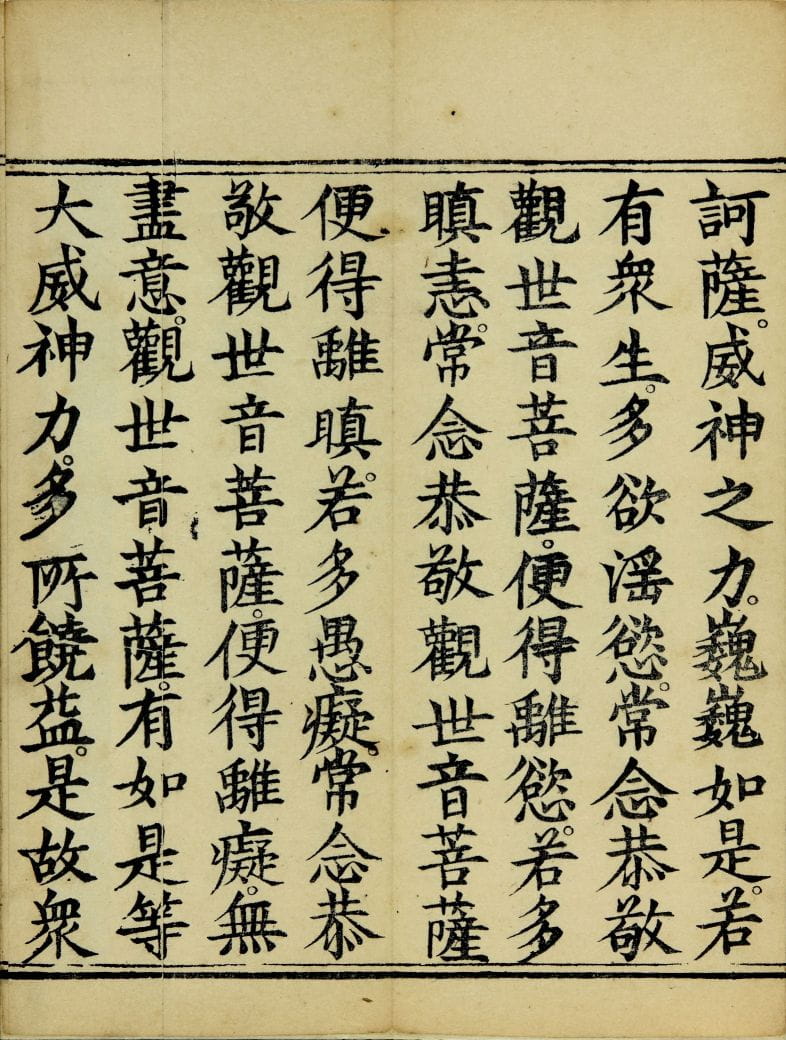 訶薩。威神之力。巍巍如是。若
有衆生。多欲滛慾。常念恭敬
觀世音菩薩。便得離慾。若多
瞋恚。常念恭敬觀世音菩薩
便得離瞋。若多愚癡。常念恭
敬觀世音菩薩。便得離癡。無
盡意。觀世音菩薩。有如是等
大威神力。多所饒益。是故衆